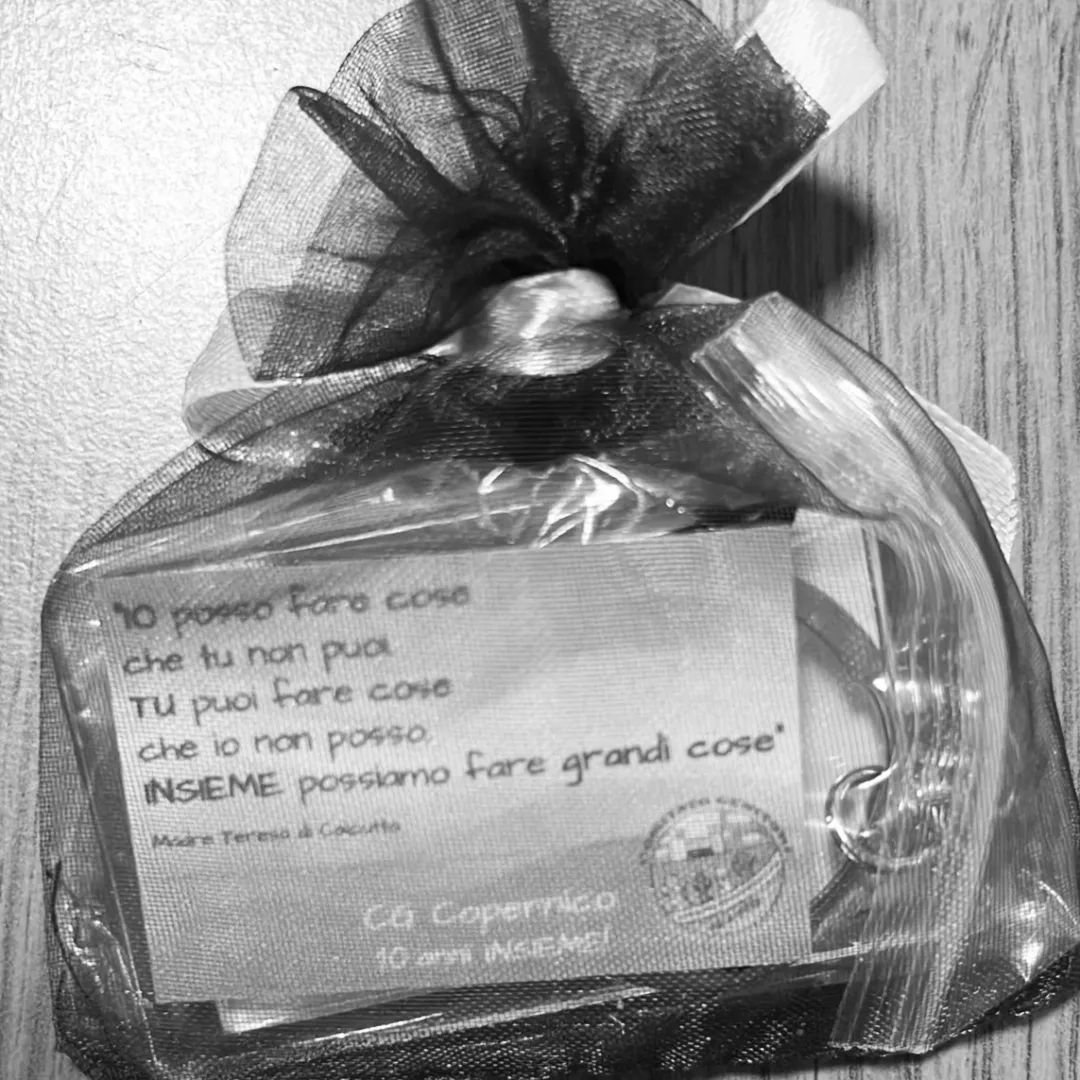 "IO posso fare cose
che tu non puoi
TU puoi fare cose
che io non posso.
INSIEME possiamo fare grandi cose"
Madre Teresa di Calcutta
CG Copernico
10 anni INSIEME!